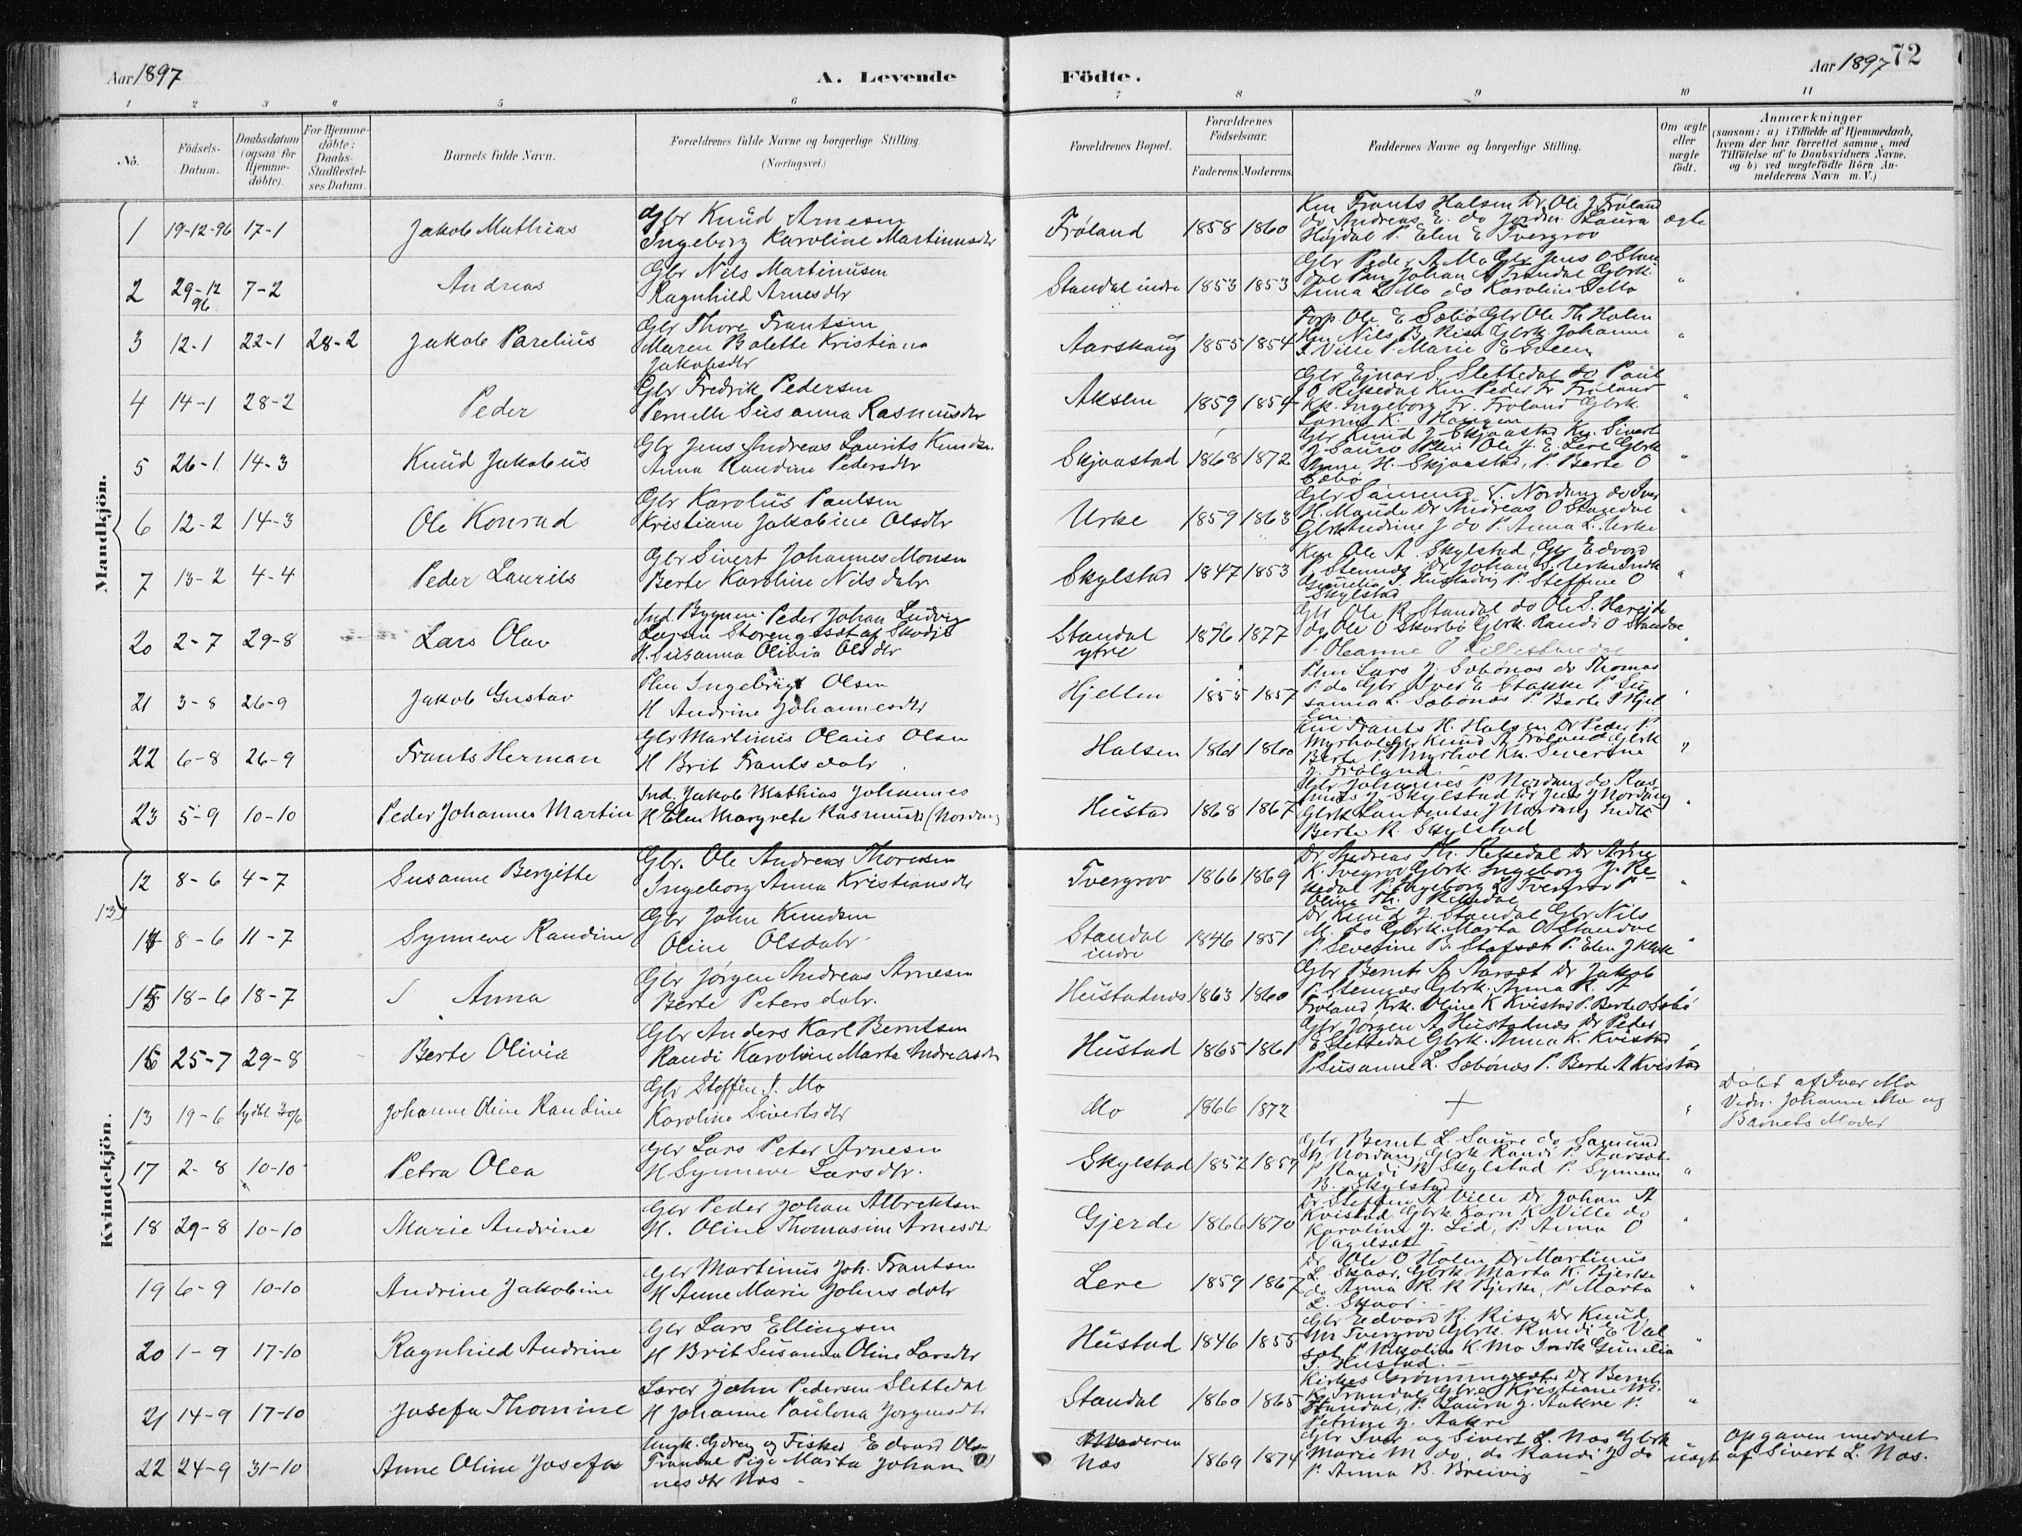 Aar 1897
A. Levende Födte.
Aar 1897
72
1 2 3 4 5 6 7 8 9 10 11
No.
Födsels-Datum.
Daabsdatum (ogsaa for Hjemmedöbte).
For Hjemmedöbte: Daabs-Stadfæstelses Datum.
Barnets fulde Navn.
Forældrenes fulde Navne og borgerlige Stilling (Næringsvei.)
Forældrenes Bopæl.
Forældrenes Födselsaar.
Faderens. Moderens.
Faddernes Navne og borgerlige Stilling.
Om ægte eller uægte födt.
Anmærkninger (saasom: a) i Tilfælde af Hjemmedaab, hvem der har forrettet samme, med Tilföielse af to Daabsvidners Navne. og b) ved uægtefödte Börn Anmelderens Navn m. V.)
Mandkjön.
1 19-12-96 17-1 Jakob Mathias
Gbr Knud Arnesen
Ingeborg Karoline Martinusdtr
Frøland 1858 1860
Km Frants Halsen Dr Ole J Frøland
do Andreas E. do Jordm. Laura
Højdal P. Elen E Tvergrov
ægte
2 29-12 96 7-2 Andreas
Gbr Nils Martinusen
Ragnhild Arnesdtr
Standal indre 1853 1853
Gbr Peder A Mo Gbr Jens O Stan
dal Pm Johan A Trandal Gbrk.
Anna L Mo do Karoline S Mo
"
3 12-1 22-1 28-2 Jakob Parelius
Gbr Thore Frantsen
Maren Bolette Kristiana
Jakobsdtr
Aarskaug 1855 1854
Forp Ole E Sæbø Gbr Ole Th Holen
Km Nils B. Rise Gbrk. Johanne
S Ville P Marie E Sveen
"
4 14-1 28-2 Peder
Gbr Fredrik Pedersen
Pernille Susanna Rasmusdtr
Aksln 1859 1854
Gbr Ejnar S. Slettedal do Paul
O Rekkedal Km Peder Fr Frøland
Kk. Ingeborg Fr. Frøland Gbrk.
"
5 26-1 14-3 Knud Jakobus
Gbr Jens Andreas Laurits Knudsn.
Anna Randine Pedersdtr
Skjaastad 1868 1872
Gbr Knud J. Skjaastad Km. Sivert
J Saure Pkm Ole J. E. Lere Gbrk
Anne H. Skjaastad, P. Berte O
Sæbø
"
6 12-2 14-3 Ole Konrad
Gbr Karolus Paulsen
Kristiane Jakobine Olsdtr
Urke 1859 1863
Gbr Samund V. Nordang do Iver
H. Maude Dr Andreas O Standal
Gbrk Andine J do P. Anna L. Urke
"
7 13-2 4-4 Peder Laurits
Gbr Sivert Johannes Monsen
Berte Karoline Nilsdatr
Skylstad 1847 1853
Km Ole A Skylstad, Gbr Edvard
P. Stennes Dr Johan S. Urke Indk
Gunelia S. Hustadvig P. Steffine O
Skylstad
"
20 2-7 29-8 Lars Olav
Ind. Bygmm. Peder Johan Ludvig
Larsen Storengsæt af Skodje
H. Susanna Olivia Olsdtr
Standal ytre 1876 1877
Gbr Ole R Standal do Ole S. Hareide
do Ole O Skarbø Gbrk Randi O Standal
P. Oleanne P Lillestandal
"
21 3-8 26-9 Jakob Gustav
Plm Ingebrigt Olsen
H Andrine Johannesdtr
Hjellen 1855 1857
Plm Lars J. Sæbønes do Thomas
P. do Gbr Iver E Stakke P Su
sanna L. Sæbønes P. Berte P Hjel
len
"
22 6-8 26-9 Frants Herman
Gbr Martinus Olaus Olsen
H Brit Frantsdatr
Halsen 1861 1860
Km Frants H. Halsen Dr Peder P.
Myrhol Gbr Knud A Frøland Gbrk
Berte P. Myrhol Kk. Severine
J. Frøland.
"
23 5-9 10-10 Peder Johannes Martin
Ind. Jakob Mathias Johannes
H Elen Margrete Rasmusdtr (Nordang
Hustad 1868 1867
Gbr Johannes P Nordang do Ras
mus J Skylstad Dr Jens J Nordang
Gbrk Laurentse J Nordang Indk
Berte R. Skylstad
"
Kvindekjön.
12 8-6 4-7 Susanne Bergitte
Gbr. Ole Andreas Thoresen
Ingeborg Anna Kristiansdtr
Tvergrov 1866 1869
Dr Andreas Th. Rekkedal Dr Arne
K. Tvegrov Gbrk. Ingeborg J. Re-
kkedal P. Ingeborg L Tvergrov P
Oline Th. Rekkedal
"
13
14 8-6 11-7 Synneve Randine
Gbr John Knudsen
Oline Olsdatr
Standal indre 1846 1851
Dr Knud J. Standal Gbr Nils
M. do Gbrk. Marta O Standal
P. Severine B. Stafsæt P. Elen J Klok
"
15 18-6 18-7 Anna
Gbr Jørgen Andreas Arnesen
Berte Petersdatr.
Hustadnes 1863 1860
Gbr Bernt A Aarsæt Dr Jakob
P. Stennes Gbrk. Anna R. A
Frøland Krk. Oline K Kvistad P. Berte O Sæbø
"
16 25-7 29-8 Berte Olivia
Gbr Anders Karl Berntsen
Randi Karoline Marta Andreasdtr
Hustad 1865 1861
Gbr Jørgen A Hustadnes Dr Peder
E Slettedal Gbrk. Anna K. Kvistad
P Susanne L. Sæbønes P. Berte A Kvistad
"
13 19-6 hjdbt 30/6 Johanne Oline Randine
Gbr Steffen I. Mo
Karoline Sivertsdtr
Mo 1866 1872 + "
Døbt af Iver Mo
Vidn. Johanne Mo og
Barnets Moder
17 2-8 10-10 Petra Olea
Gbr Lars Peter Arnesen
H Synneve Larsdtr.
Skylstad 1852 1859
Gbr Bernt L. Saure do Samund
N Nordang, Gbrk Randi P Aarsæt
P Randi B Skylstad P. Synneve
B. Skylstad
"
18 29-8 10-10 Marie Andrine
Gbr Peder Johan Albrektsen
H. Oline Thomasine Arnesdtr
Gjerde 1866 1870
Dr Steffen A Ville Dr Johan A
Kvistad Gbrk Karn K Ville do
Karoline J. Lid, P. Anna O
"
19 6-9 10-10 Andrine Jakobine
Gbr Martinus Joh. Frantsen
H Anne Marie Johnsdatr
Lere 1859 1867
Dr Ole O Holen Dr Martinus
L. Skaar, Gbrk Marta K. Bjerke
do Anna R. R Bjerke, P Marta
L. Skaar
"
20 1-9 17-10 Ragnhild Andrine
Gbr Lars Ellingsen
H Brit Susanna Oline Larsdtr
Hustad 1846 1855
Gbr Edvard R. Rise Dr Knud
M Tvergrov Gbrk. Randi E Val
sæt P Nikoline K. Mo Indk Gunelia
S. Hustad.
"
21 14-9 17-10 Josefa Thomine
Lærer John Pedersen Slettedal
H Johanne Paulona Jørgensdtr
Standal 1860 1865
Kirkes. Grønningsæt Dr Bernt
K. Trandal, Gbrk Kristiane M.
Standal, P. Laura J. Aakre P.
Petrine J. Aakre
"
22 24-9 31-10 Anne Oline Josefa
Ungk. Gdrng og Fisker Edvard Olsen
Trandal Pige Marta Johan
nesdtr Nos -
Moderen Næs 1869 1874
Gbr Iver og Sivert L. Nos Gbrk
Marie M do, do Randi J do
P. Anna B. Breivig
uægt
Opgaven meddelt
af Sivert L. Nos.